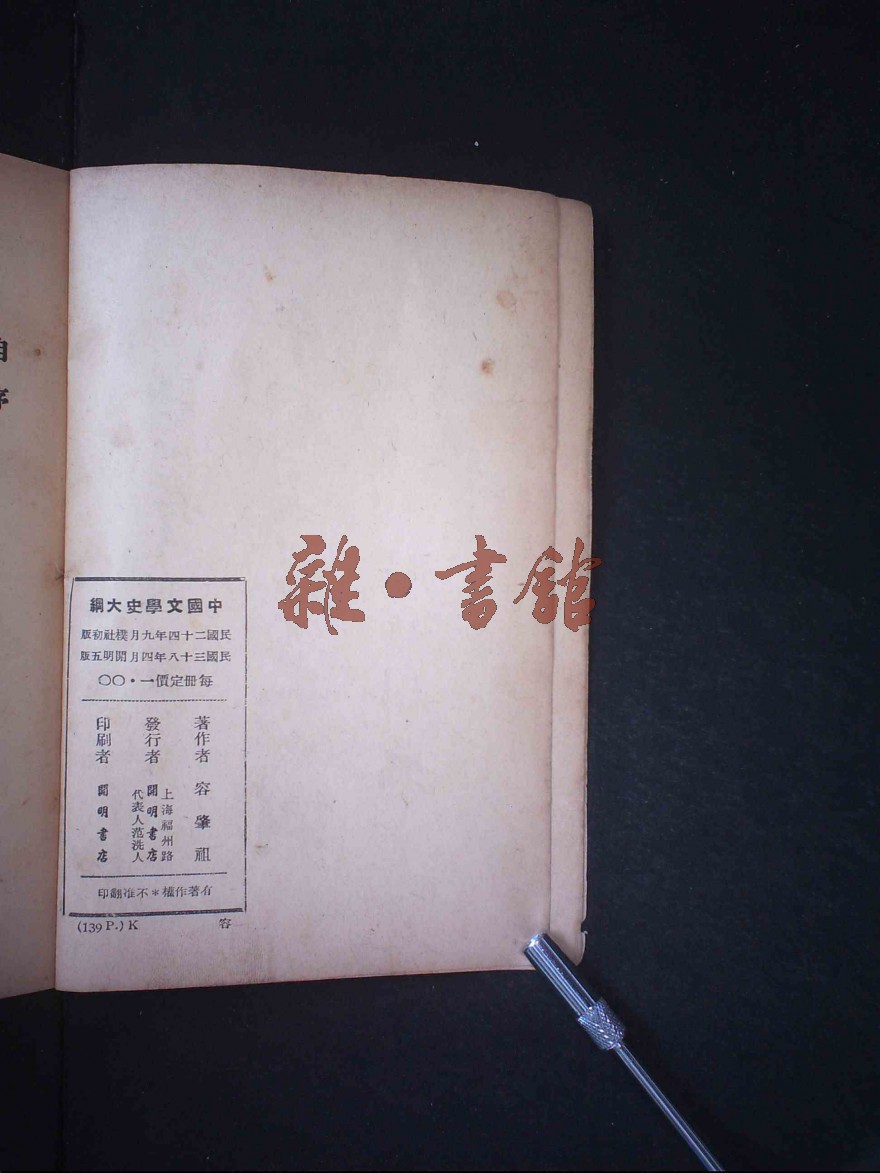 自序
雜·書館
中國文學史大綱
民國二十四年九月樸社初版
民國三十八年四月開明五版
每冊定價一·〇〇
著作者 容肇祖
發行者 上海福州路
開明書店
代表人范洗人
印刷者 開明書店
有著作權*不准翻印
(139 P.) K 容